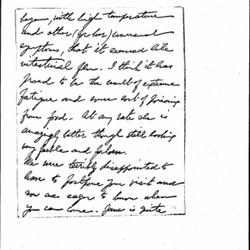 began, with high temperature
and other (for her) unusual
symptoms, that it seemed like
intestinal flu. I think it has
proved to be the result of extreme
fatigue and some sort of poisoning
from food. At any rate she is
amazingly better though still looking
very feeble and forlorn.
We were terribly disappointed to
have to postpone your visit and
now are eager to know when
you can come. June is quite